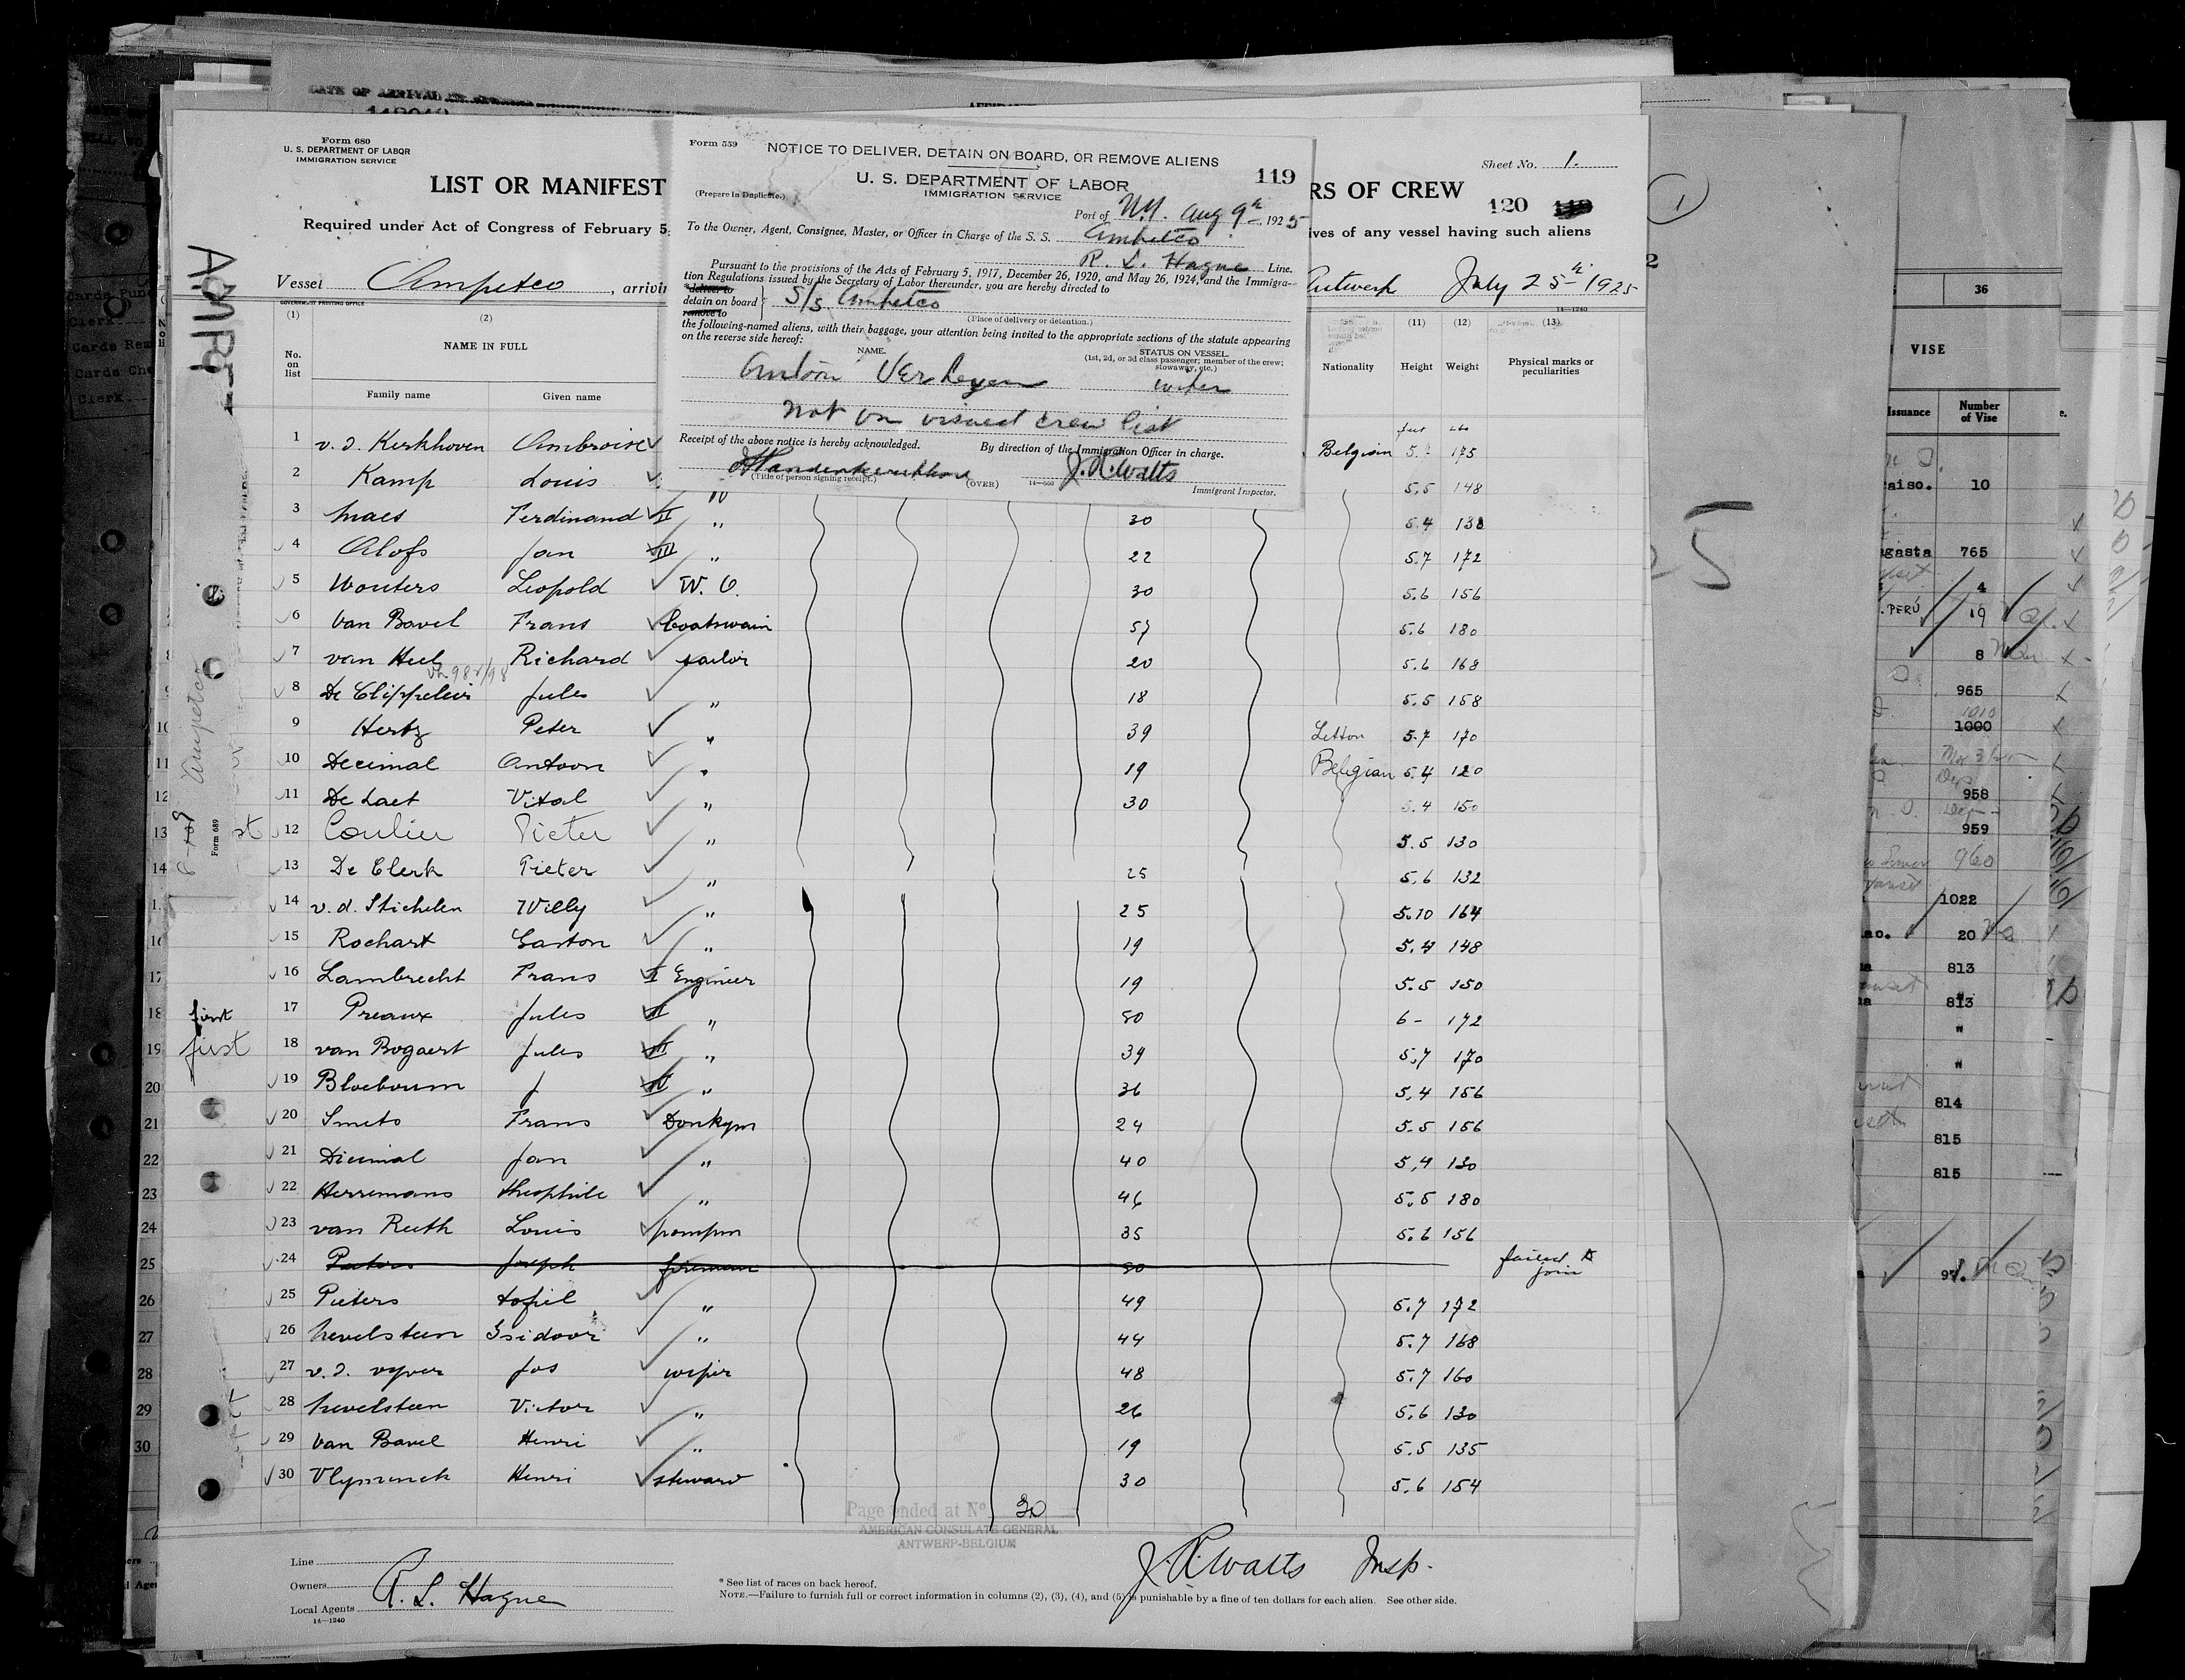 Form 680
U. S. DEPARTMENT OF LABOR
IMMIGRATION SERVICE
LIST OR MANIFEST
RS OF CREW
Sheet No. 1.
120
Required under Act of Congress of February 5,
ives of any vessel having such aliens
Vessel Ampetco, arrivin
Antwerp July 25th 1925
GOVERNMENT PRINTING OFFICE
14—1240
Form 559
NOTICE TO DELIVER, DETAIN ON BOARD, OR REMOVE ALIENS
U. S. DEPARTMENT OF LABOR
119
IMMIGRATION SERVICE
(Prepare in Duplicate.)
Port of N.Y. Aug 9th, 1925
To the Owner, Agent, Consignee, Master, or Officer in Charge of the S. S. Ampetco
R. L. Hague Line.
Pursuant to the provisions of the Acts of February 5, 1917, December 26, 1920, and May 26, 1924, and the Immigra-
tion Regulations issued by the Secretary of Labor thereunder, you are hereby directed to
*deliver to
detain on board S/s Ampetco
remove to
(Place of delivery or detention.)
the following-named aliens, with their baggage, your attention being invited to the appropriate sections of the statute appearing
on the reverse side hereof:
NAME. STATUS ON VESSEL.
(1st, 2d, or 3d class passenger; member of the crew;
stowaway, etc.)
Antoin Verheyen wiper
not on visued crew list
Receipt of the above notice is hereby acknowledged. By direction of the Immigration Officer in charge.
J. R. Watts
(Title of person signing receipt.) (OVER) Immigrant Inspector.
(1) (2) (11) (12) (13)
No. on list NAME IN FULL Nationality Height Weight Physical marks or peculiarities
Family name Given name
feet lbs
1 v. d. Kerkhoven Ambroise Belgian 175
2 Kamp Louis 5.5 148
3 Maes Ferdinand II " 30 5.4 138
4 Alofs Jan III " 22 5.7 172
5 Wouters Leopold W. O. 30 5.6 156
6 Van Bavel Frans Boatswain 57 5.6 180
7 van Heel Richard sailor 20 5.6 168
8 De Clippeleir Jules " 18 5.5 158
9 Hertz Peter " 39 Letton 5.7 170
10 Decimal Antoon " 19 Belgian 5.4 120
11 De Laet Vital " 30 5.4 150
12 Coulier Pieter " 5.5 130
13 De Clerk Pieter " 25 5.6 132
14 v. d. Stichelen Willy " 25 5.10 164
15 Rochart Gaston " 19 5.4 148
16 Lambrecht Frans I Engineer 19 5.5 150
17 Preaux Jules II " 50 6- 172
18 van Bogaert Jules III " 39 5.7 170
19 Bloeboum J IV " 36 5.4 156
20 Smets Frans Donkym 24 5.5 156
21 Dicimal Jan " 40 5.4 130
22 Herremans Theophile " 46 5.5 180
23 van Reeth Louis pompm 35 5.6 156
24 Peeters Joseph fireman 30 failed to join
25 Pieters tofiel " 49 5.7 172
26 hevelsteen Isidoor " 44 5.7 168
27 v. d. vyver Jos wiper 48 5.7 160
28 hevelsteen Victor " 26 5.6 130
29 Van Bavel Henri " 19 5.5 135
30 Vlyminck Henri steward 30 5.6 154
first
first
AMPET
Ampetco
Form 689
Page ended at No 30
AMERICAN CONSULATE GENERAL
ANTWERP-BELGIUM
Line
Owners R. L. Hague
Local Agents
14—1240
J. R. Watts Insp.
* See list of races on back hereof.
NOTE.—Failure to furnish full or correct information in columns (2), (3), (4), and (5) is punishable by a fine of ten dollars for each alien. See other side.
36
VISE
Issuance Number of Vise
aiso. 10
gasta 765
4
PERÚ 19
8
965
1010
1000
958
959
960
1022
ao. 20
813
813
"
"
814
815
815
97.